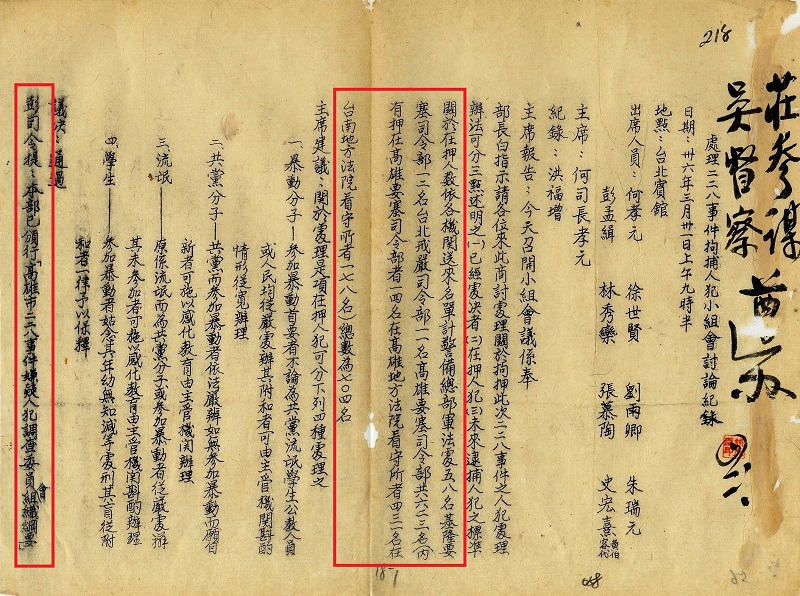 218
莊參謀
吳督察
處理二二八事件拘捕人犯小組會討論紀錄
日期：卅六年三月卅日上午九時半
地點：台北賓館
出席人員：何孝元　徐世賢　劉雨卿　朱瑞元
彭孟緝　林秀欒　張慕陶　史宏熹
主席：何司長孝元
紀錄：洪福增
主席報告：今天召開小組會議係奉
部長白指示請各位來此商討處理關於拘押此次二二八事件之人犯處理
辦法可分三點述明之(一)已經處決者(二)在押人犯(三)未來逮捕人犯之標準
關於在押人數依各機關送來名單計警備總部軍法處五八名基隆要
塞司令部一二名台北戒嚴司令部一一名高雄要塞司令部共六二三名(內
有押在高雄要塞司令部者一四名在高雄地方法院看守所者四三一名在
台南地方法院看守所者一七八名)總數為七〇四名
主席建議：關於處理是項在押人犯可分下列四種處理之
一、暴動分子－參加暴動首要者不論為共黨流氓學生公教人員
或人民均從嚴處辦其附和者可由主管機關斟酌
情形從寬辦理
二、共黨分子－共黨而參加暴動者依法嚴辦如無參加暴動而願自
新者可施以感化教育由主管機關辦理
三、流氓－原係流氓而為共黨分子或參加暴動者從嚴處辦
其未參加者可施以感化教育由主管機關斟酌辦理
四、學生－參加暴動者姑念其年幼無知減等處刑其盲從附
和者一律予以保釋
議決：通過
彭司令提：本部已頒行「高雄市二二八事件嫌疑人犯調查委員會組織綱要」
187